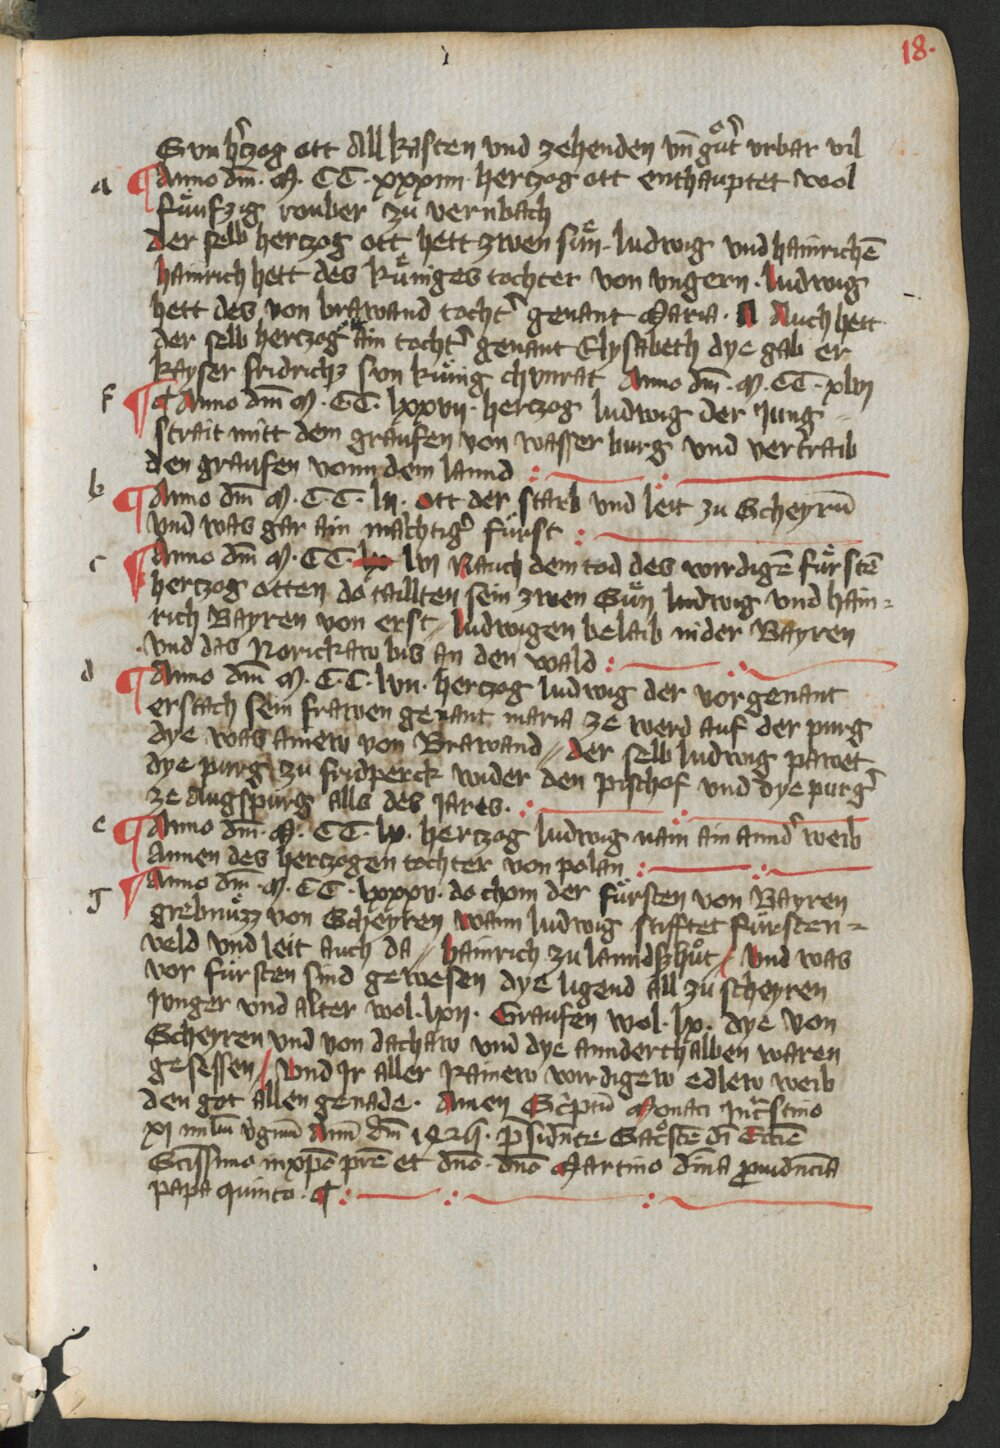 18.
Sun hʼczog ott All kasten vnd zehenden vn̄ gůtʼ vrbar vil
a ¶ Anno dm̄· M· CC· xxxiiii· hertzog ott enthauptet wol
fünfzig rouber zu vernbach
der selb hertzog ott hett zwen sün· ludwig vnd hainrichē
hainrich hett des küniges tochter von vngern· ludwig
hett des von brawand tochtʼ genant Maria· A Auch hett
der selb hertzog ain tochtʼ genant Elysabeth dye gab er
kayser fridrichs sun künig chunrat Anno dm̄· M· CC· xlvj
f ¶ Anno dm̄ M· CC· lxxvij· hertzog ludwig der Jung
strait mitt dem graufen von wasser burg vnd vertraib
den graufen vonn dem lannd
b ¶ Anno dm̄ M· C·C· lij· Ott der starb vnd leit zu Scheyrn̄
vnd was gar ain mächtigʼ fürst
c ¶ Anno dm̄ M· CC· lvj Nauch dem tod des wirdigē fürstē
hertzog otten do taillten sein zwen Sün ludwig vnd hain=
rich Bayren von erst // ludwigen belaib nider Bayren
vnd das Norickaw bis an den wald
d ¶ Anno dm̄ M· C·C· lvij· hertzog ludwig der vorgenant
erstach sein frawen genant maria ze werd auf der purg
dye was ainew von Brawand // der selb ludwig pawet
dye purg zu fridperck wider den pischof vnd dye purgʼ
ze Augspurg alls des jares·
e ¶ Anno dm̄· M· CC· lx· hertzog ludwig nam ain anndʼ weib
Annen des hertzogen tochter von polan
g ¶ Anno dm̄· M· CC· lxxxv· do chom der fürsten von Bayren
grebnüzz von Scheyren wann ludwig stifftet fürsten=
veld vnd leit auch da // hainrich zu lanndßhůt / Vnd was
vor fürsten sind gewesen dye ligend all zu scheyren
Junger vnd alter wol· lxij· Graufen wol· lx· dye von
Scheyren vnd von dachaw vnd dye annderthalben waren
gesessen / Vnd Jr aller Rainew wirdigew edlew weib
den got allen genade· Amen Scʼptū Monaci
xj Ann̄ dm̄ 142
Scissimo in xp̄o prē et dn̄o· dn̄o Martino dīna ꝓuidncia
papa quinto·